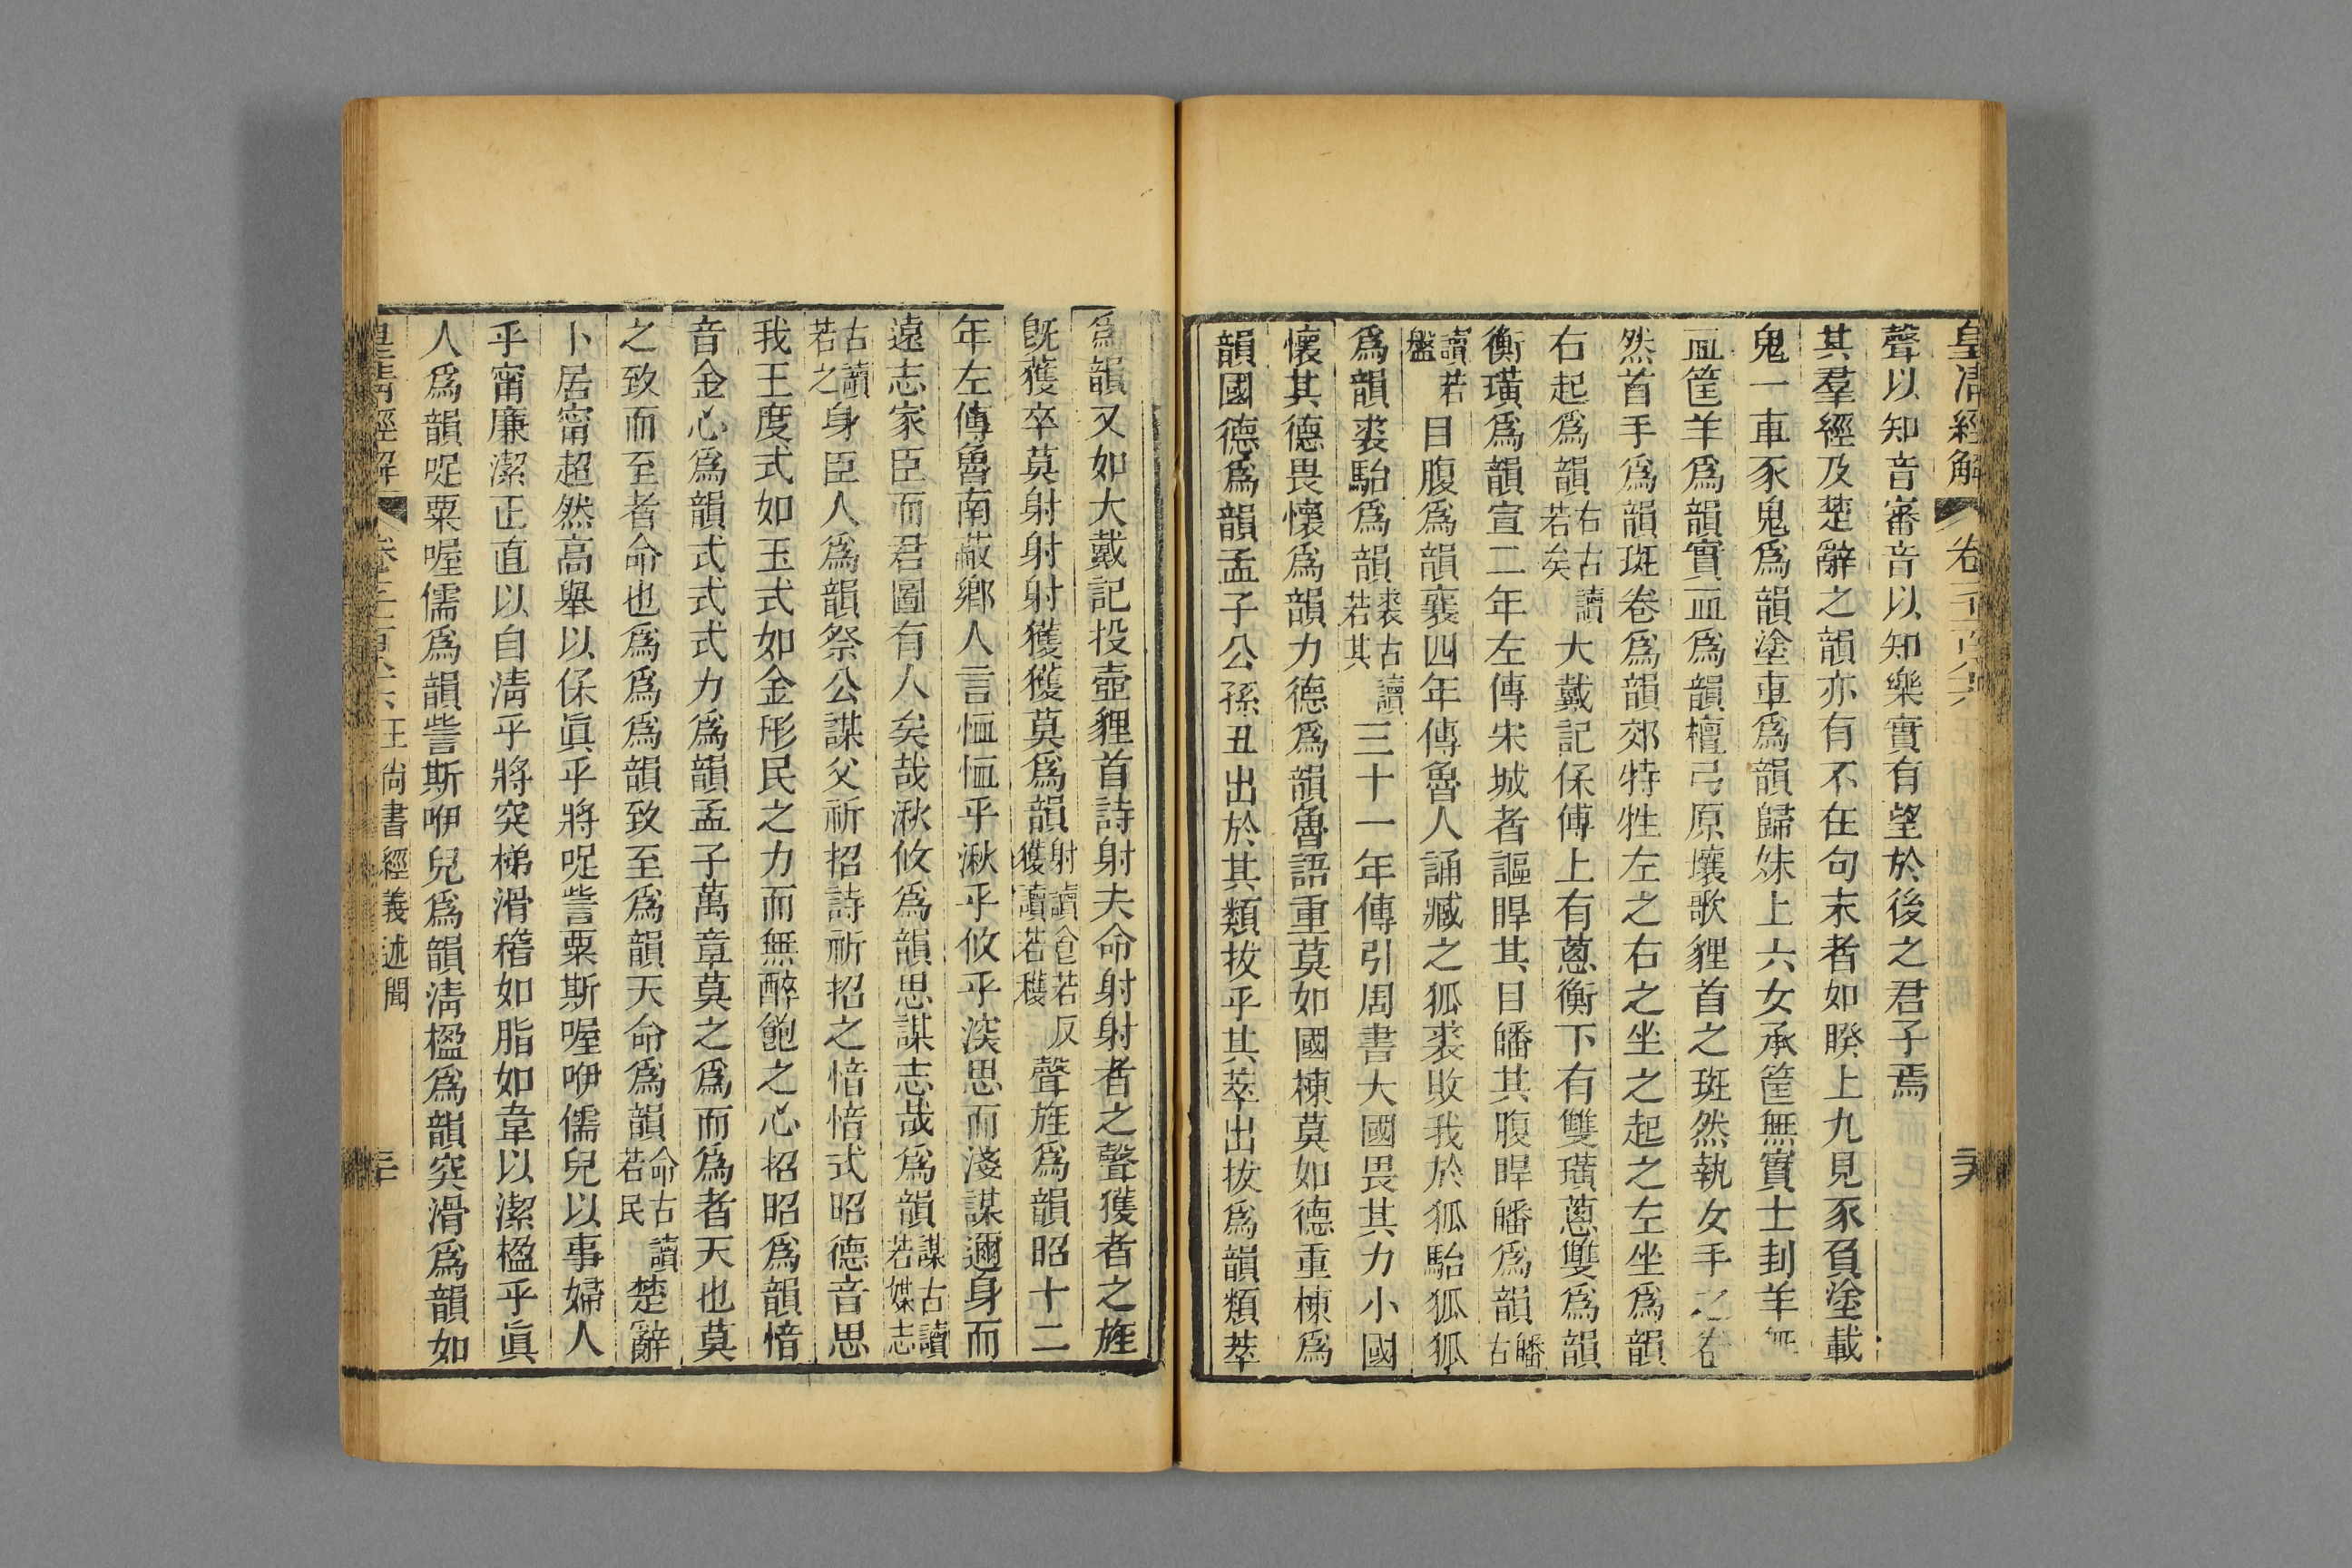 皇清經解 卷
聲以知音審音以知樂實有望於後之君子焉
其羣經及楚辭之韻亦有不在句末者如睽上九見豕負塗載
鬼一車豕鬼爲韻塗車爲韻歸妹上六女承筐無實士刲羊無
血筐羊爲韻實血爲韻檀弓原壤歌貍首之斑然執女手之卷
然首手爲韻斑卷爲韻郊特牲左之右之坐之起之左坐爲韻
右起爲韻右古讀若矣大戴記保傅上有蔥衡下有雙璜蔥雙爲韻
衡璜爲韻宣二年左傳宋城者謳睅其目皤其腹睅皤爲韻皤古
讀若盤目腹爲韻襄四年傳魯人誦臧之狐裘敗我於狐駘狐狐
爲韻裘駘爲韻裘古讀若其三十一年傳引周書大國畏其力小國
懷其德畏懷爲韻力德爲韻魯語重莫如國棟莫如德重棟爲
韻國德爲韻孟子公孫丑出於其類拔乎其萃出拔爲韻類萃
爲韻又如大戴記投壺貍首詩射夫命射射者之聲獲者之旌
旣獲卒莫射射射獲獲莫爲韻射讀食若反獲讀若穫聲旌爲韻昭十二
年左傳魯南蒯鄉人言恤恤乎湫乎攸乎深思而淺謀邇身而
遠志家臣而君圖有人矣哉湫攸爲韻思謀志哉爲韻謀古讀若媒志
古讀若之身臣人爲韻祭公謀父祈招詩祈招之愔愔式昭德音思
我王度式如玉式如金形民之力而無醉飽之心招昭爲韻愔
音金心爲韻式式式力爲韻孟子萬章莫之爲而爲者天也莫
之致而至者命也爲爲爲韻致至爲韻天命爲韻命古讀若民楚辭
卜居甯超然高舉以保眞乎將哫訾粟斯喔咿儒兒以事婦人
乎甯廉潔正直以自淸乎將突梯滑稽如脂如韋以潔楹乎眞
人爲韻哫粟喔儒爲韻訾斯咿兒爲韻淸楹爲韻突滑爲韻如
皇清經解 卷 王尚書經義述聞